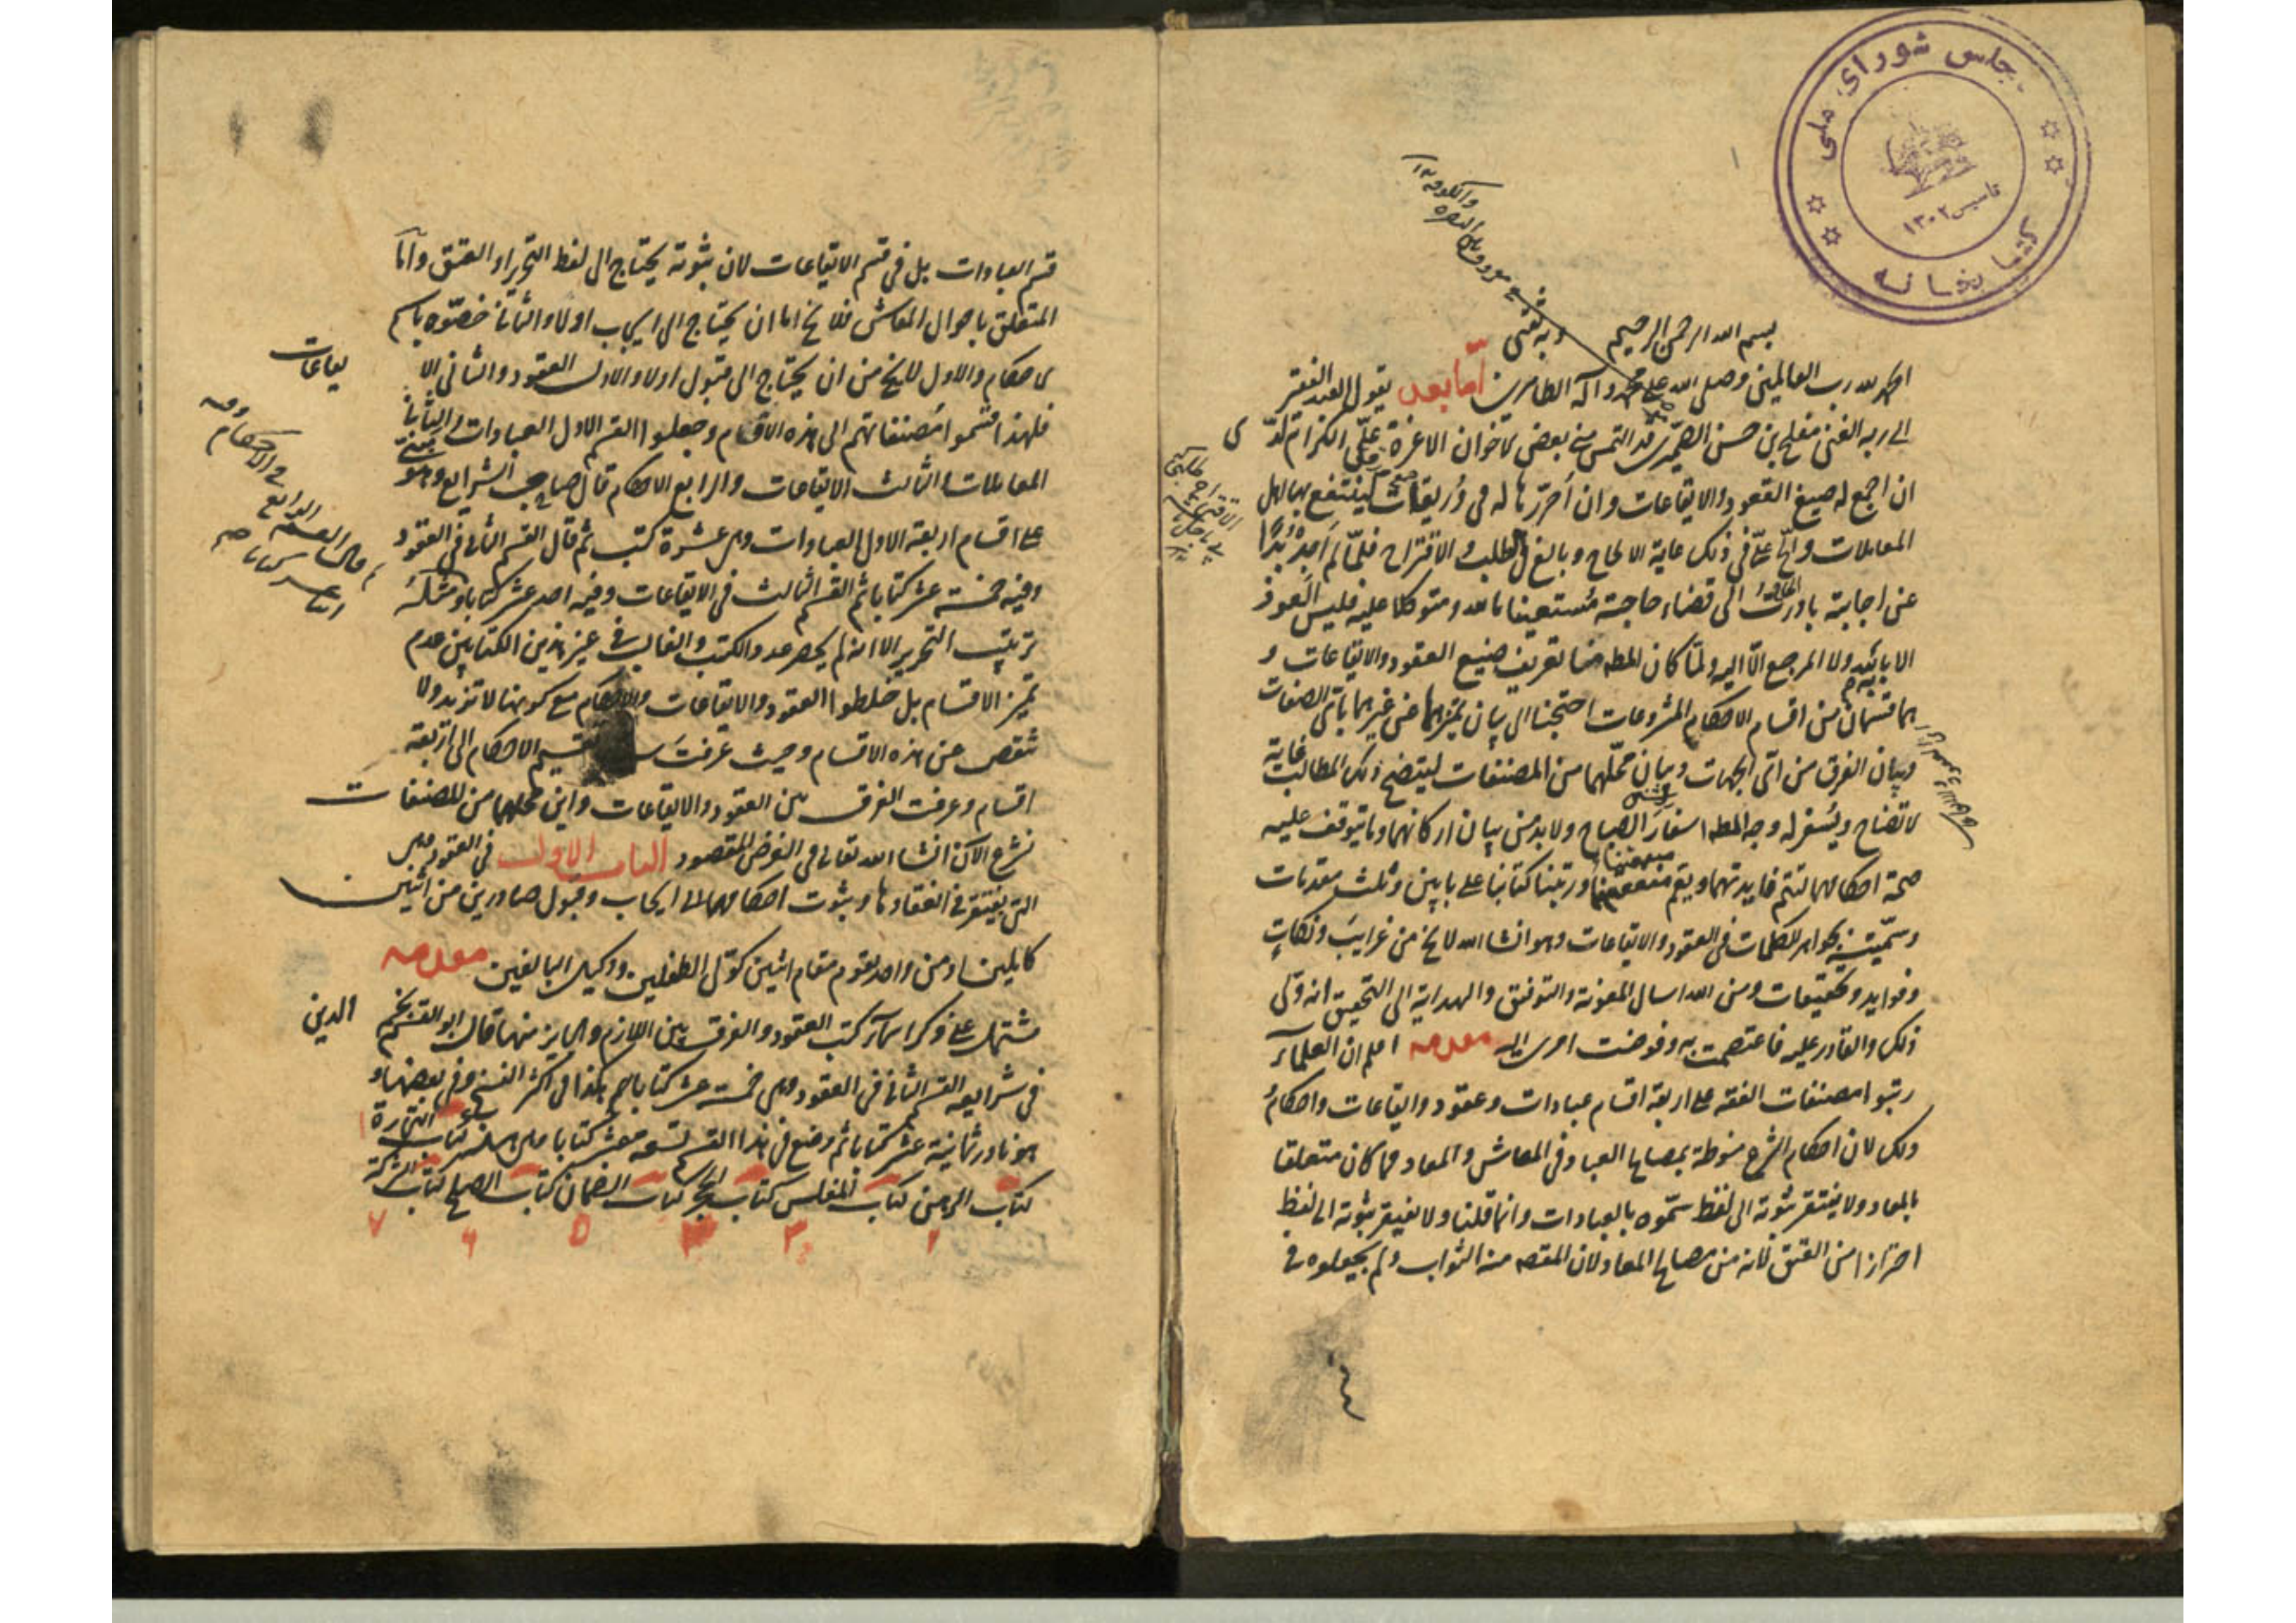 مجلس شورای ملی
کتابخانه
تاسیس ۱۳۰۲
بسم الله الرحمن الرحيم
وبه ثقتى
الحمد لله رب العالمين وصلى الله على محمد وآله الطاهرين أما بعد يقول العبد الفقير
الى ربه الغنى مفلح بن حسن الصيمرى قد التمس منى بعض الاخوان الاعزة على الكرام لدى
ان اجمع له صيغ العقود والايقاعات وان احررها له فى وريقات لينتفع بها اهل
المعاملات والح على فى ذلك غاية الالحاح وبالغ فى الطلب والاقتراح فلما لم اجد بدا
عن اجابته بادرت الى قضاء حاجته مستعينا بالله ومتوكلا عليه فليس العون
الا بيده ولا المرجع الا اليه ولما كان المط هنا تعريف صيغ العقود والايقاعات و
هما قسمان من اقسام الاحكام المشروعات احتجنا الى بيان تميزهما عن غيرهما باى الصفات
وبيان الفرق من اى الجهات وبيان محلهما من المصنفات ليتضح ذلك المطالب غاية
الاتضاح ويسفر له وجه المط اسفار الصباح ولا بد من بيان اركانهما وما يتوقف عليه
صحة احكامهما لتتم فايدتهما ويعم منفعتهما ورتبنا كتابنا على بابين وثلث مقدمات
وسميته بجواهر الكلمات فى العقود والايقاعات وهو انشا الله لا يخ من غرايب ونكات
وفوايد وتحقيقات ومن الله اسال المعونة والتوفيق والهداية الى التحقيق انه ولى
ذلك والقادر عليه فاعتصمت به وفوضت امرى اليه مقدمه اعلم ان العلماء
رتبوا مصنفات الفقه على اربعة اقسام عبادات وعقود وايقاعات واحكام
وذلك لان احكام الشرع منوطة بمصالح العباد فى المعاش والمعاد فما كان متعلقا
بالمعاد ولا يفتقر ثبوته الى لفظ سموه بالعبادات وانما قلنا ولا يفتقر ثبوته الى لفظ
احترازا من العتق لانه من مصالح المعاد لان المقص منه الثواب ولم يجعلوه فى
قسم العبادات بل فى قسم الايقاعات لان ثبوته يحتاج الى لفظ التحرير او العتق واما
المتعلق باحوال المعاش فلا يخ اما ان يحتاج الى ايجاب اولا والثانى خصوه باسم
الاحكام والاول لا يخ من ان يحتاج الى قبول اولا والاول العقود والثانى الا
يقاعات
فلهذا قسموا مصنفاتهم الى هذه الاقسام وجعلوا القسم الاول العبادات والثانى
المعاملات والثالث الايقاعات والرابع الاحكام قال صاحب الشرايع وهو مبنى
على اقسام اربعة الاول العبادات وهى عشرة كتب ثم قال القسم الثانى فى العقود
وفيه خمسة عشر كتابا ثم القسم الثالث فى الايقاعات وفيه احد عشر كتابا ومثله
ثم قال القسم الرابع فى الاحكام وفيه
اثنى عشر كتابا
ترتيب التحرير الا انه لم يحصر عدد الكتب والغالب فى غير هذين الكتابين عدم
تميز الاقسام بل خلطوا العقود والايقاعات والاحكام مع كونها لا تزيد ولا
تنقص عن هذه الاقسام وحيث عرفت تقسيم الاحكام الى اربعة
اقسام وعرفت الفرق بين العقود والايقاعات واين محلهما من المصنفات
نشرع الآن انشا الله تعالى فى الغرض المقصود الباب الاول فى العقود وهى
التى يفتقر فى انعقادها وثبوت احكامها الى ايجاب وقبول صادرين من اثنين
كاملين او من واحد يقوم مقام اثنين كولى الطفلين ووكيل البالغين مقدمه
مشتمل على ذكر اسماء كتب العقود والفرق بين اللازم والجايز منها قال ابو القسم نجم
الدين
فى شرايعه القسم الثانى فى العقود وهى خمسة عشر كتابا هكذا فى اكثر النسخ وفى بعضها و
هو نادر ثمانية عشر كتابا ثم وضع فى هذا القسم تسعة عشر كتابا كتاب التجارة
كتاب الرهن كتاب المفلس كتاب الحجر كتاب الضمان كتاب الصلح كتاب الشركة
۲ ۳ ۴ ۵ ۶ ۷